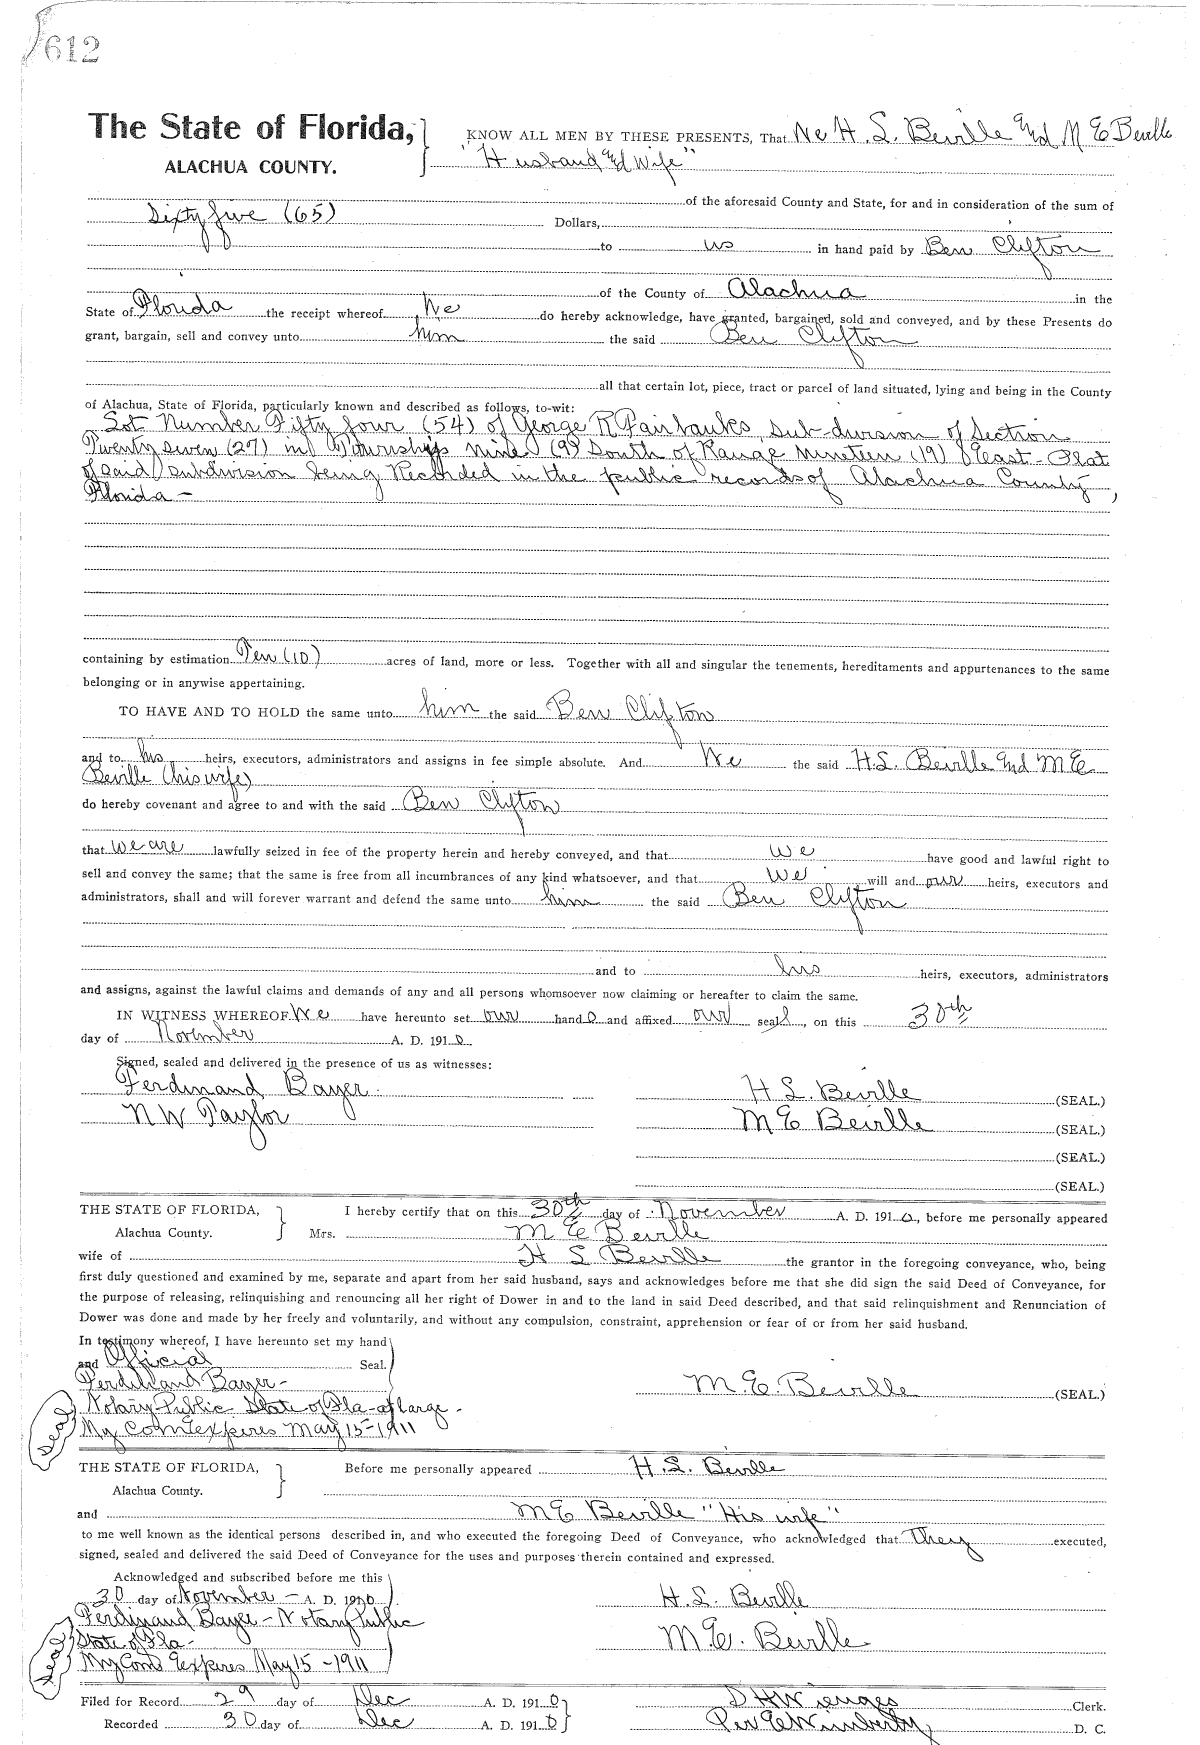 612
The State of Florida,
ALACHUA COUNTY.
KNOW ALL MEN BY THESE PRESENTS, That We H. L. Beville and M E Beville
"Husband and Wife"
of the aforesaid County and State, for and in consideration of the sum of
Sixty five (65) Dollars,
to us in hand paid by Ben Clifton
of the County of Alachua in the
State of Florida the receipt whereof We do hereby acknowledge, have granted, bargained, sold and conveyed, and by these Presents do
grant, bargain, sell and convey unto him the said Ben Clifton
all that certain lot, piece, tract or parcel of land situated, lying and being in the County
of Alachua, State of Florida, particularly known and described as follows, to-wit:
Lot Number Fifty four (54) of George R Fairbanks sub-division of Section
Twenty seven (27) in Township nine (9) South of Range nineteen (19) East - Plat
of said subdivision being Recorded in the public records of Alachua County,
Florida -
containing by estimation Ten (10) acres of land, more or less. Together with all and singular the tenements, hereditaments and appurtenances to the same
belonging or in anywise appertaining.
TO HAVE AND TO HOLD the same unto him the said Ben Clifton
and to his heirs, executors, administrators and assigns in fee simple absolute. And We the said H.L. Beville and M E
Beville (his wife)
do hereby covenant and agree to and with the said Ben Clifton
that we are lawfully seized in fee of the property herein and hereby conveyed, and that we have good and lawful right to
sell and convey the same; that the same is free from all incumbrances of any kind whatsoever, and that we will and our heirs, executors and
administrators, shall and will forever warrant and defend the same unto him the said Ben Clifton
and to his heirs, executors, administrators
and assigns, against the lawful claims and demands of any and all persons whomsoever now claiming or hereafter to claim the same.
IN WITNESS WHEREOF We have hereunto set our hands and affixed our seal, on this 30th
day of November A. D. 1910.
Signed, sealed and delivered in the presence of us as witnesses:
Ferdinand Bayer H L. Beville (SEAL.)
N W Taylor M E Beville (SEAL.)
(SEAL.)
(SEAL.)
THE STATE OF FLORIDA,
Alachua County.
I hereby certify that on this 30th day of November A. D. 1910, before me personally appeared
Mrs. M E Beville
wife of H L Beville the grantor in the foregoing conveyance, who, being
first duly questioned and examined by me, separate and apart from her said husband, says and acknowledges before me that she did sign the said Deed of Conveyance, for
the purpose of releasing, relinquishing and renouncing all her right of Dower in and to the land in said Deed described, and that said relinquishment and Renunciation of
Dower was done and made by her freely and voluntarily, and without any compulsion, constraint, apprehension or fear of or from her said husband.
In testimony whereof, I have hereunto set my hand
and Official Seal.
Ferdinand Bayer - M.E. Beville (SEAL.)
Seal Notary Public State of Fla - at large -
My Com Expires May 15 - 1911
THE STATE OF FLORIDA,
Alachua County.
Before me personally appeared H.L. Beville
and M E Beville "His wife"
to me well known as the identical persons described in, and who executed the foregoing Deed of Conveyance, who acknowledged that they executed,
signed, sealed and delivered the said Deed of Conveyance for the uses and purposes therein contained and expressed.
Acknowledged and subscribed before me this
30 day of November - A. D. 1910 H.L. Beville
Ferdinand Bayer - Notary Public
Seal State of Fla - M.E. Beville
My Com Expires May 15 - 1911
Filed for Record 29 day of Dec A. D. 1910 Clerk.
Recorded 30 day of Dec A. D. 1910 Per E Wimberly D. C.